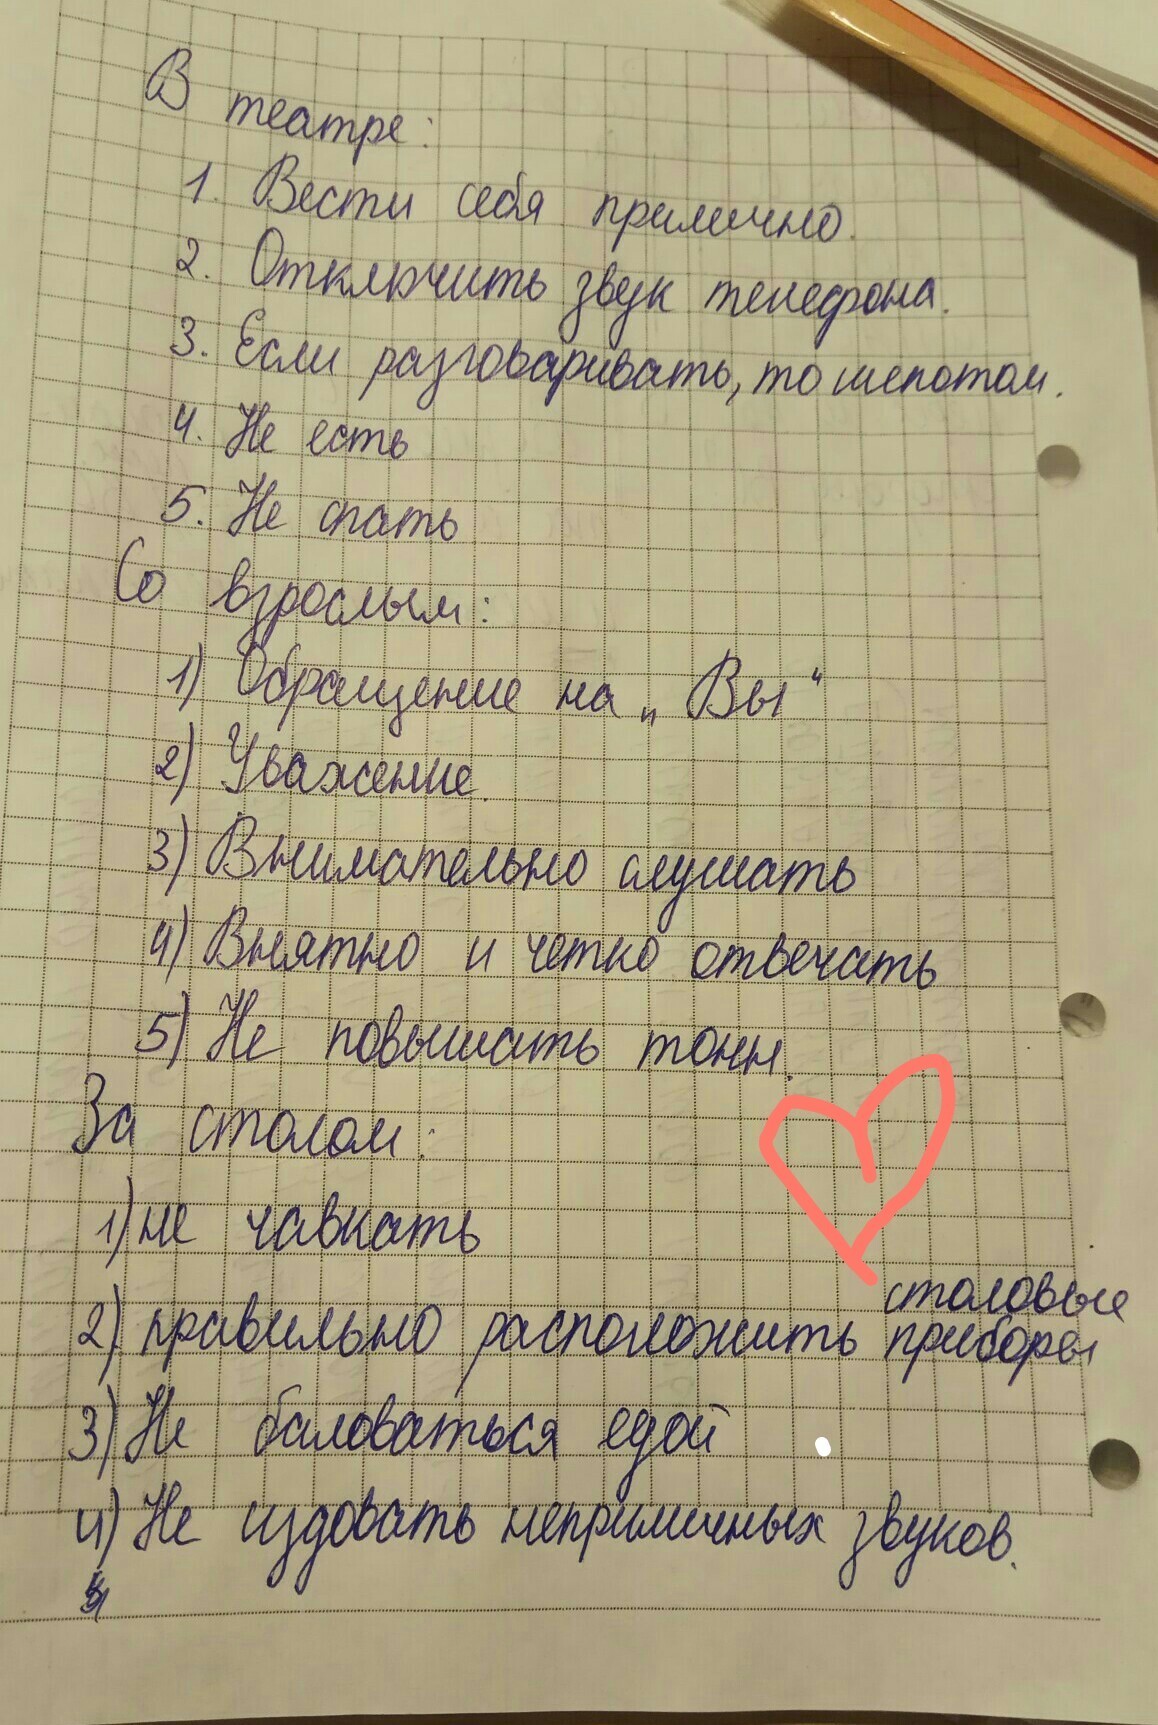 В театре:
1. Вести себя прилично.
2. Отключить звук телефона.
3. Если разговаривать, то шепотом.
4. Не есть
5. Не спать
Со взрослым:
1) Обращение на „Вы“
2) Уважение.
3) Внимательно слушать
4) Внятно и четко отвечать
5) Не повышать тонн.
За столом:
1) не чавкать
2) правильно расположить столовые приборы
3) Не баловаться едой
4) Не издовать неприличных звуков.